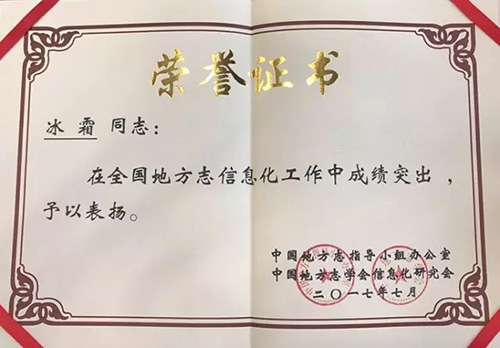 荣誉证书
冰霜同志：
在全国地方志信息化工作中成绩突出，
予以表扬。
中国地方志指导小组办公室
中国地方志学会信息化研究会
二〇一七年七月